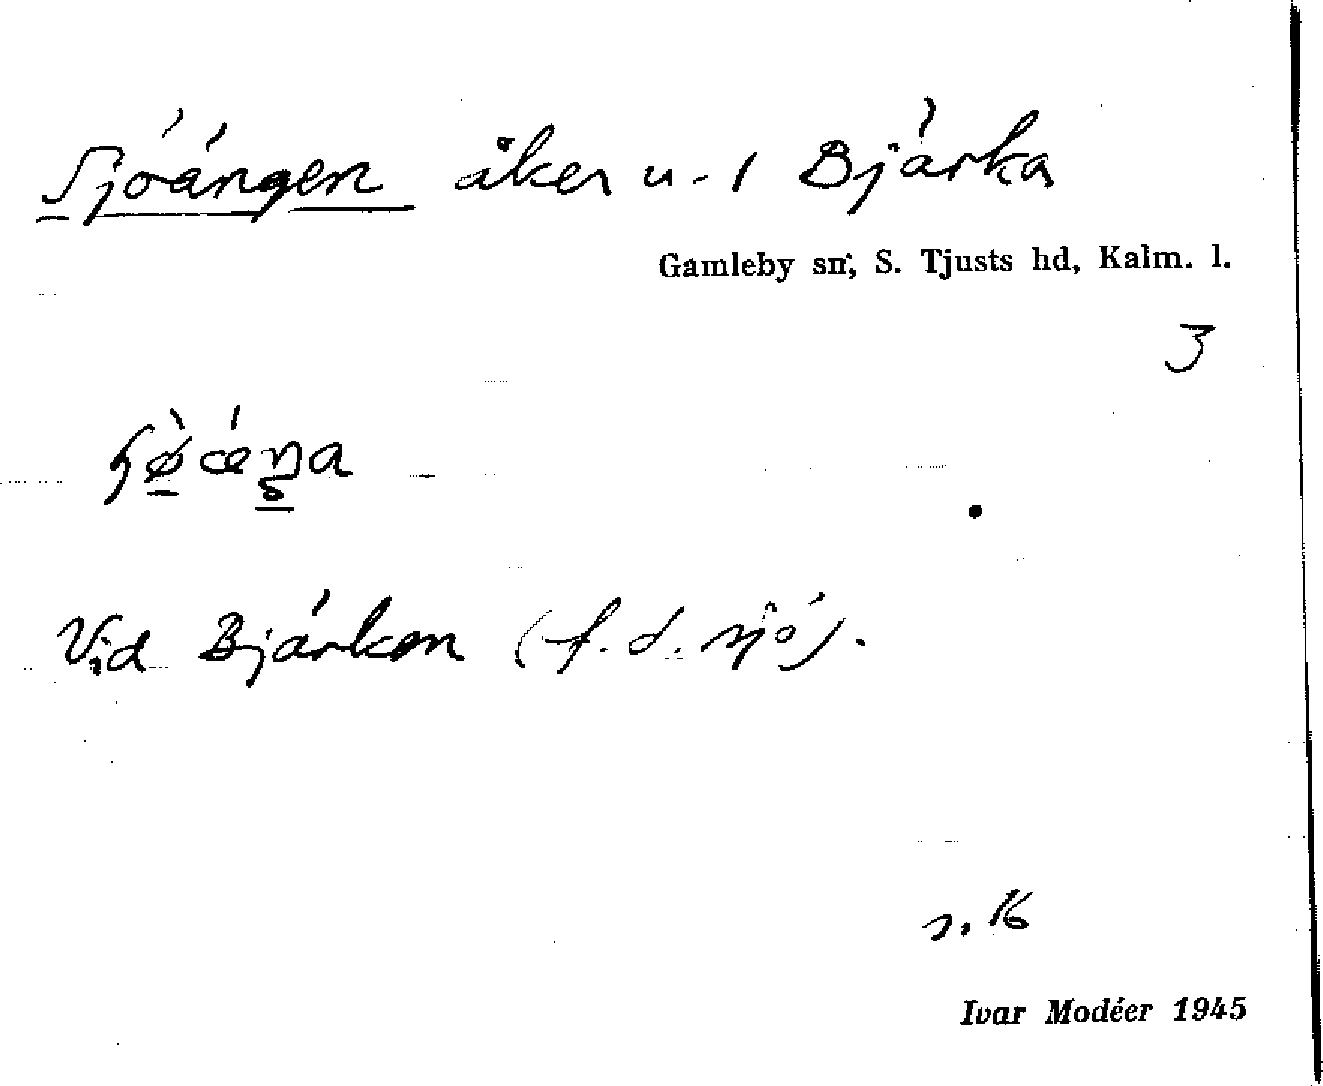 Sjöängen åker u. 1 Bjärka
Gamleby sn, S. Tjusts hd, Kalm. l.
3
Vid Bjärken (f.d. sjö).
s. 16
Ivar Modéer 1945